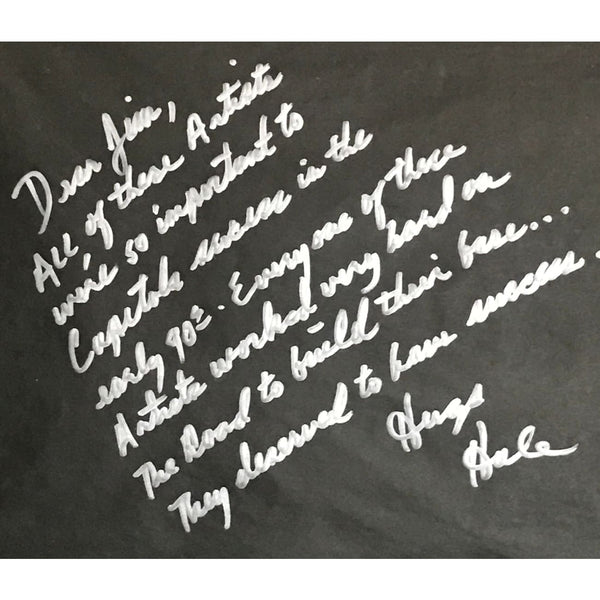 Dear Jim,
All of these Artists
were so important to
Capitols success in the
early 90s. Everyone of these
Artists worked very hard on
The Road to build their base...
They deserved to have success.
Hugs
Hale